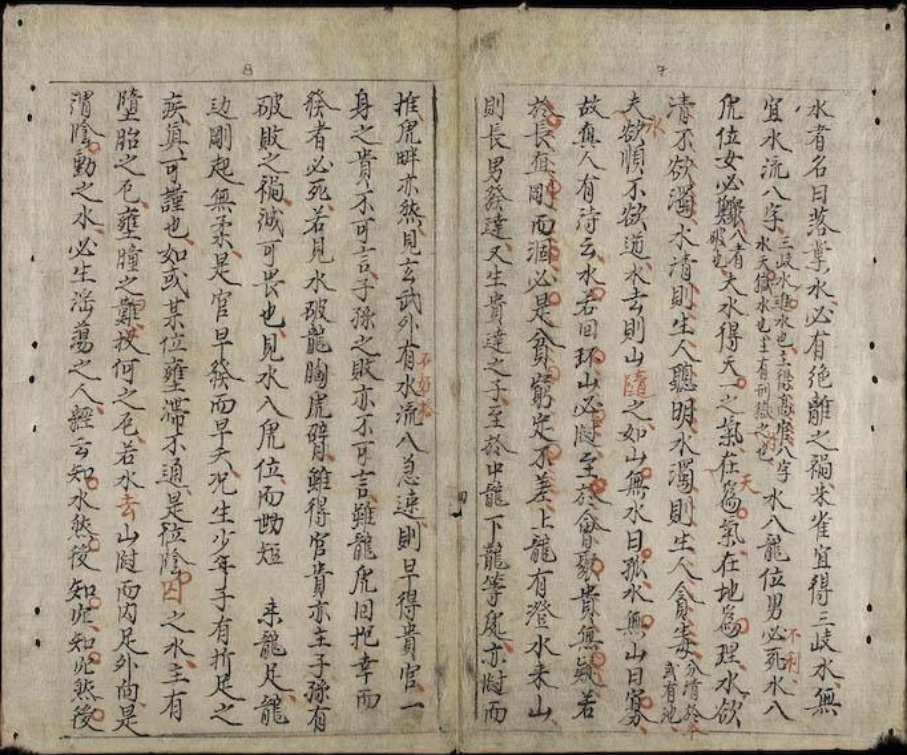 7
水者名曰落業水必有絶離之禍朱雀宜得三歧水無
宜水流八字三歧水進水也玉 高 八字水天獄水也主有刑獄之也水八龍位男必死水八
不利
虎位女必鰥八者破也夫水得天一之氣在 氣在地為理水欲
天
清不欲濁水清則生人聽明水濁則生人貪毒
夫欲順不欲道水去則山隨之如山無水曰孤水無山曰寡
水
故真人有詩云水若回环山必 至於會聚貴無疑若
於長直剛而涸必是貧窮定不差上龍有澄水来山
則長男發達又生貴達之子至於中龍下龍等處亦 而
8
推虎畔亦然見玄武外有水流八急速則早得貴官一
身之貴不可言子孫之敗亦不可言雖龍虎回抱幸而
發者必死若見水破龍胸虎臂雖得官貴亦主子孫有
破敗之禍誠可畏也見水入虎位而 短 来龍足龍
边剛起無柔是官早發而早夭况生少年子有折足之
疾真可謹也如或某位壅滞不通是位陰囚之水主有
墮胎之厄壅腫之難投何之厄若水去山 而内足外向是
渭陰動之水必生淫蕩之人經云知水然後知穴知穴然後